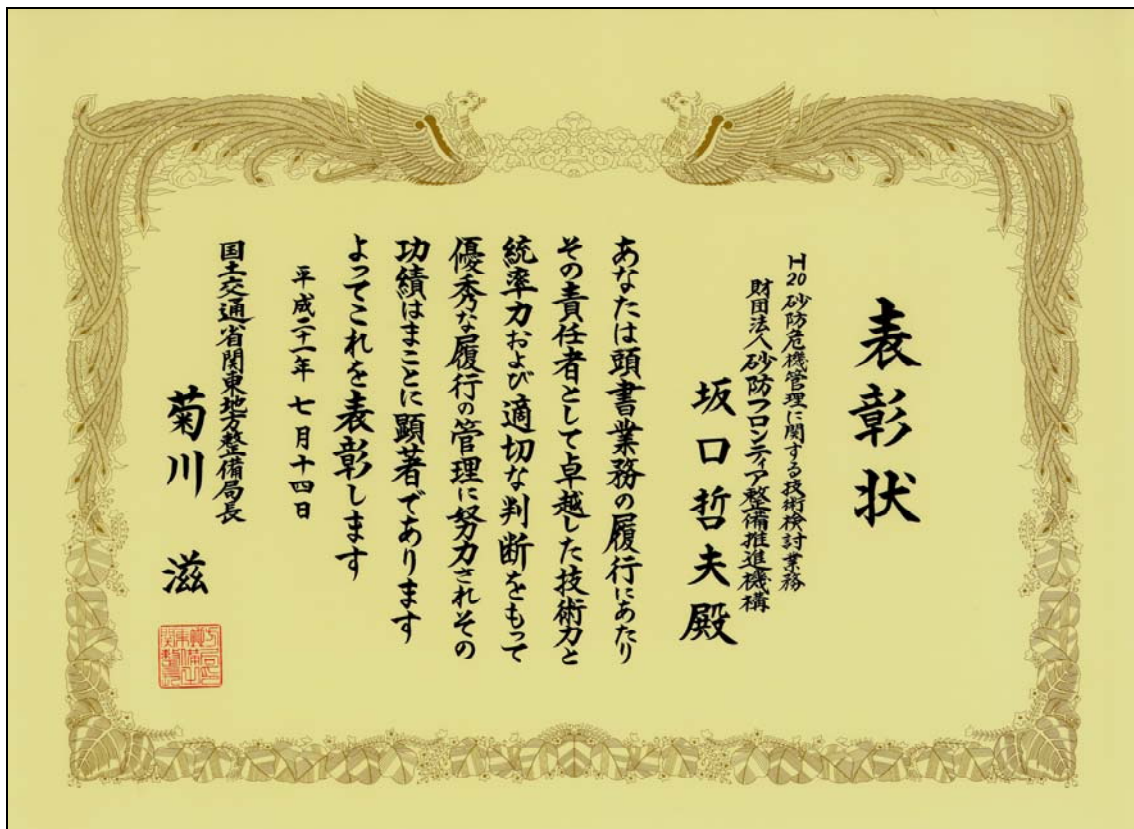 表彰状
H20 砂防危機管理に関する技術検討業務
財団法人 砂防フロンティア整備推進機構
坂口哲夫殿
あなたは頭書業務の履行にあたり
その責任者として卓越した技術力と
統率力および適切な判断をもって
優秀な履行の管理に努力されその
功績はまことに顕著であります
よってこれを表彰します
平成二十一年七月十四日
国土交通省関東地方整備局長
菊川 滋